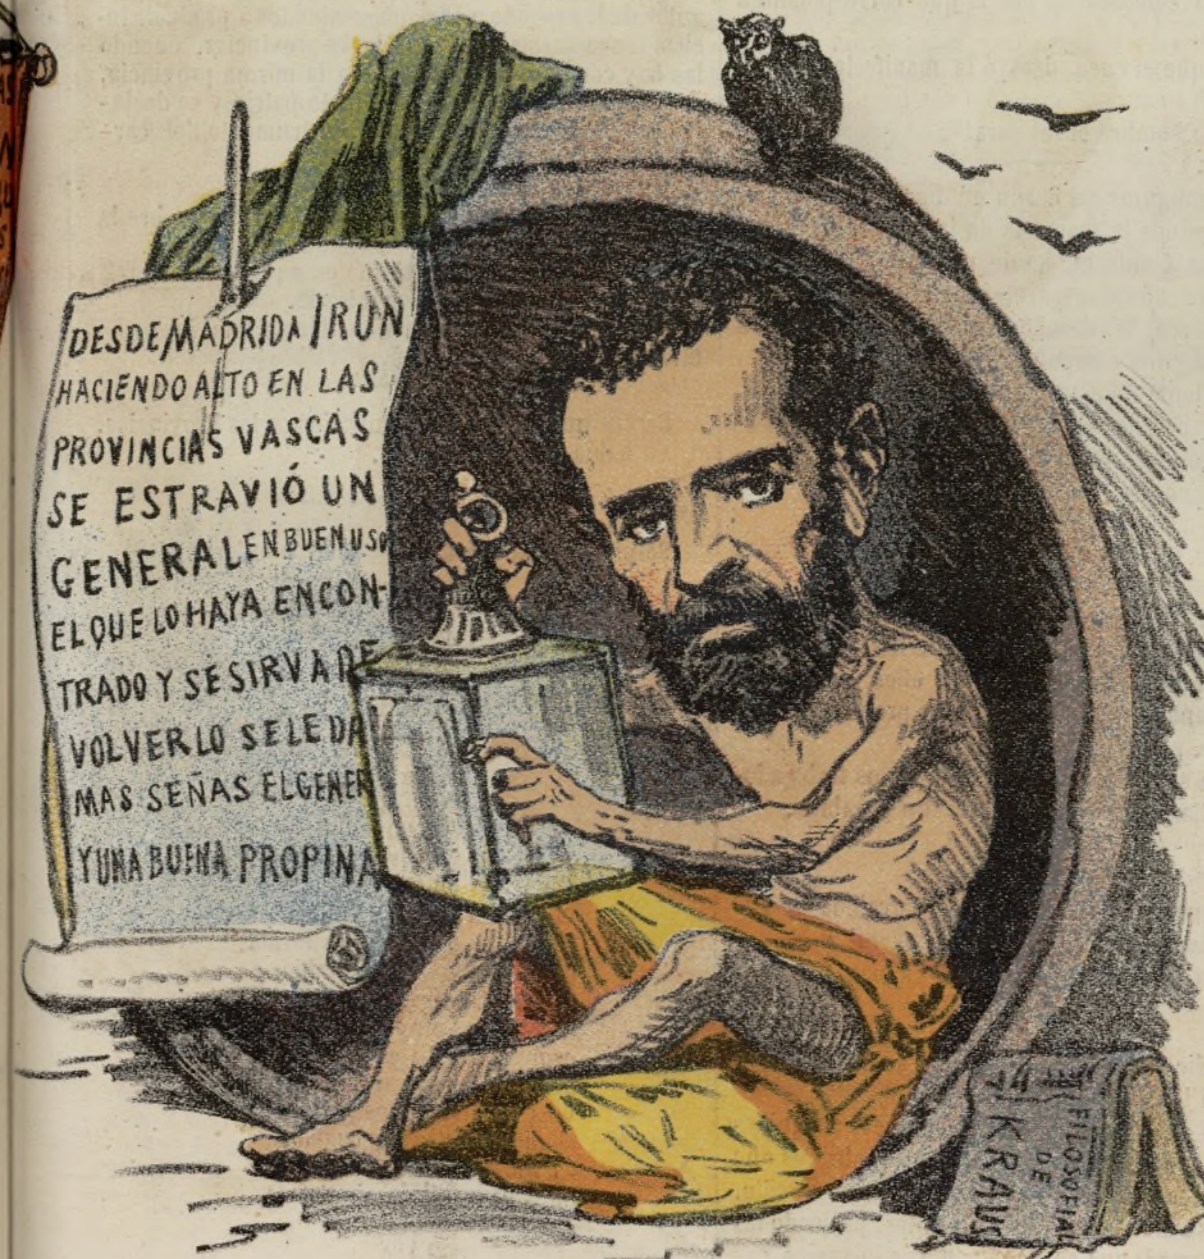 DESDE MADRID A IRUN
HACIENDO ALTO EN LAS
PROVINCIAS VASCAS
SE ESTRAVIÓ UN
GENERAL EN BUEN USO
EL QUE LO HAYA ENCON-
TRADO Y SE SIRVA DE
VOLVERLO SE LE DA
MAS SEÑAS EL GENER
Y UNA BUENA PROPINA
FILOSOFIA
DE
KRAUS